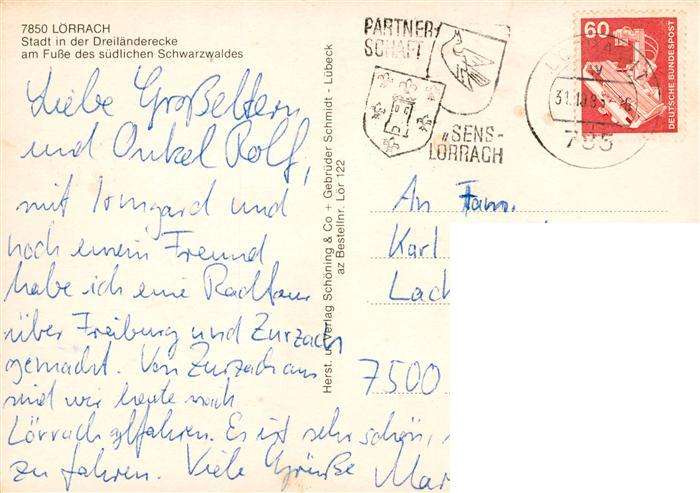 7850 LÖRRACH
Stadt in der Dreiländerecke
am Fuße des südlichen Schwarzwaldes
Liebe Großeltern
und Onkel Rolf,
mit Irmgard und
noch einem Freund
habe ich eine Radtour
über Freiburg und Zurzach
gemacht. Von Zurzach aus
sind wir heute nach
Lörrach gefahren. Es ist sehr schön,
zu fahren. Viele Grüße
Herst. u. Verlag Schöning & Co + Gebrüder Schmidt - Lübeck
az Bestellnr. Lör 122
PARTNER-
SCHAFT
SENS-
LÖRRACH
60
DEUTSCHE BUNDESPOST
An Fam.
Karl
7500